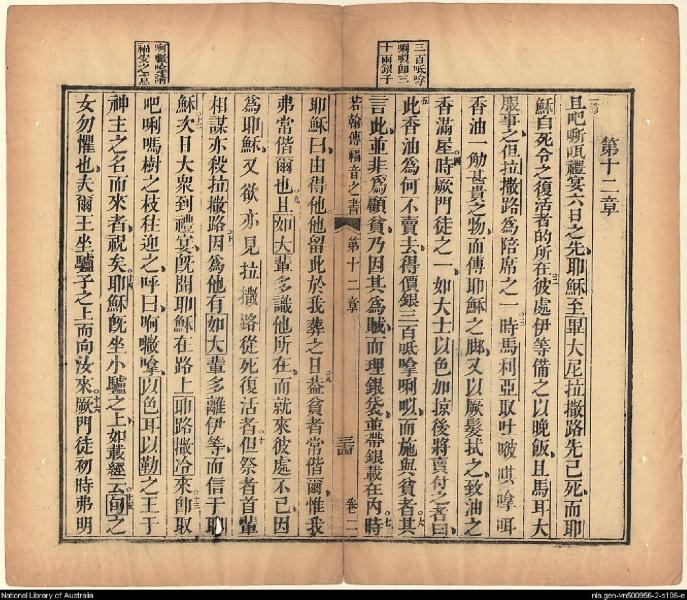 三百呧嗱
唎㕽即三
十兩銀子
第十二章
且吧嘶𠯈禮宴六日之先耶穌至畢大尼拉撒路先已死而耶
穌自死令之復活者的所在彼處伊等備之以晚飯且馬耳大
服事之但拉撒路為陪席之一時馬利亞取
香油一觔甚貴之物而傅耶穌之脚又以厥髮拭之致油之
香滿屋時厥門徒之一如大士以色加掠後將賣付之者曰
此香油為何不賣去得價銀三百呧嗱唎㕽而施與貧者其
言此並非為顧貧乃因其為賊而理銀袋並帶銀載在內時
若翰傳福音之書
第十二章
卷二
耶穌曰由得他他留此於我葬之日蓋貧者常偕爾惟我
弗常偕爾也且如大輩多識他所在而就來彼處不已因
為耶穌又欲亦見拉撒路從死復活者但祭者首輩
相謀亦殺拉撒路因為他有如大輩多離伊等而信于耶
穌次日大衆到禮宴旣聞耶穌在路上耶路撒冷來即取
吧唎嗎樹之枝往迎之呼曰啊㘔嗱以色耳以勒之王于
神主之名而來者祝矣耶穌旣坐小驢之上如載經云旬之
女勿懼也夫爾王坐驢子之上而向汝來厥門徒初時弗明